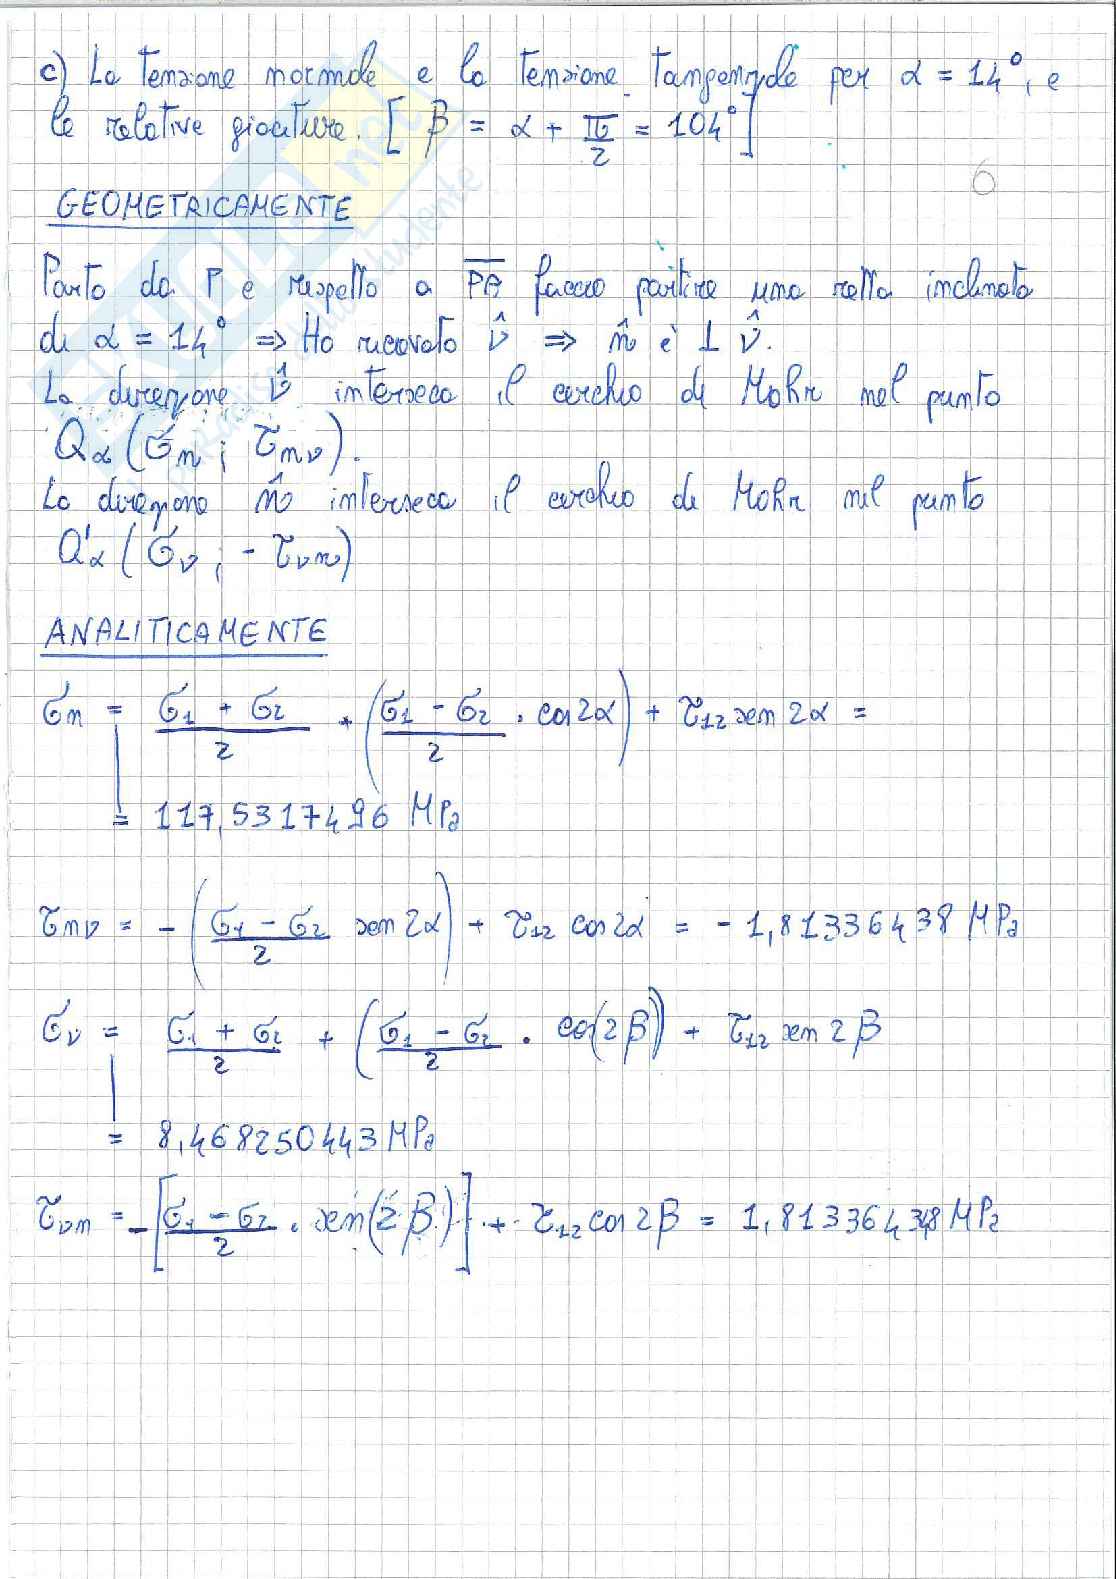 c) La tensione normale e la tensione tangenziale per α = 14°, e
le relative giaciture. [ β = α + π/2 = 104° ]
6
GEOMETRICAMENTE
Parto da P e rispetto a PA faccio partire una retta inclinata
di α = 14° => Ho ricavato ν̂ => n̂ è ⊥ ν̂.
La direzione ν̂ interseca il cerchio di Mohr nel punto
Qα (σn ; τnν).
La direzione n̂ interseca il cerchio di Mohr nel punto
Q'α (σν ; - τνn)
ANALITICAMENTE
σn = (σ1 + σ2)/2 + ((σ1 - σ2)/2 · cos2α) + τ12 sen 2α =
= 117,5317496 MPa
τnν = - ((σ1 - σ2)/2 sen 2α) + τ12 cos 2α = - 1,813364 38 MPa
σν = (σ1 + σ2)/2 + ((σ1 - σ2)/2 · cos(2β)) + τ12 sen 2β
= 8,468250443 MPa
τνn = - [(σ1 - σ2)/2 · sen(2β)] + τ12 cos 2β = 1,81336438 MPa